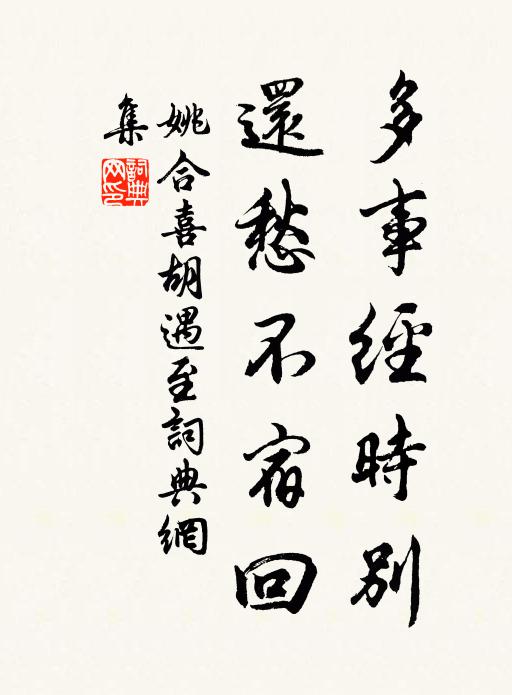 多事經時別
還愁不宿回
姚合喜胡遇至詞典網
集
詞典網印